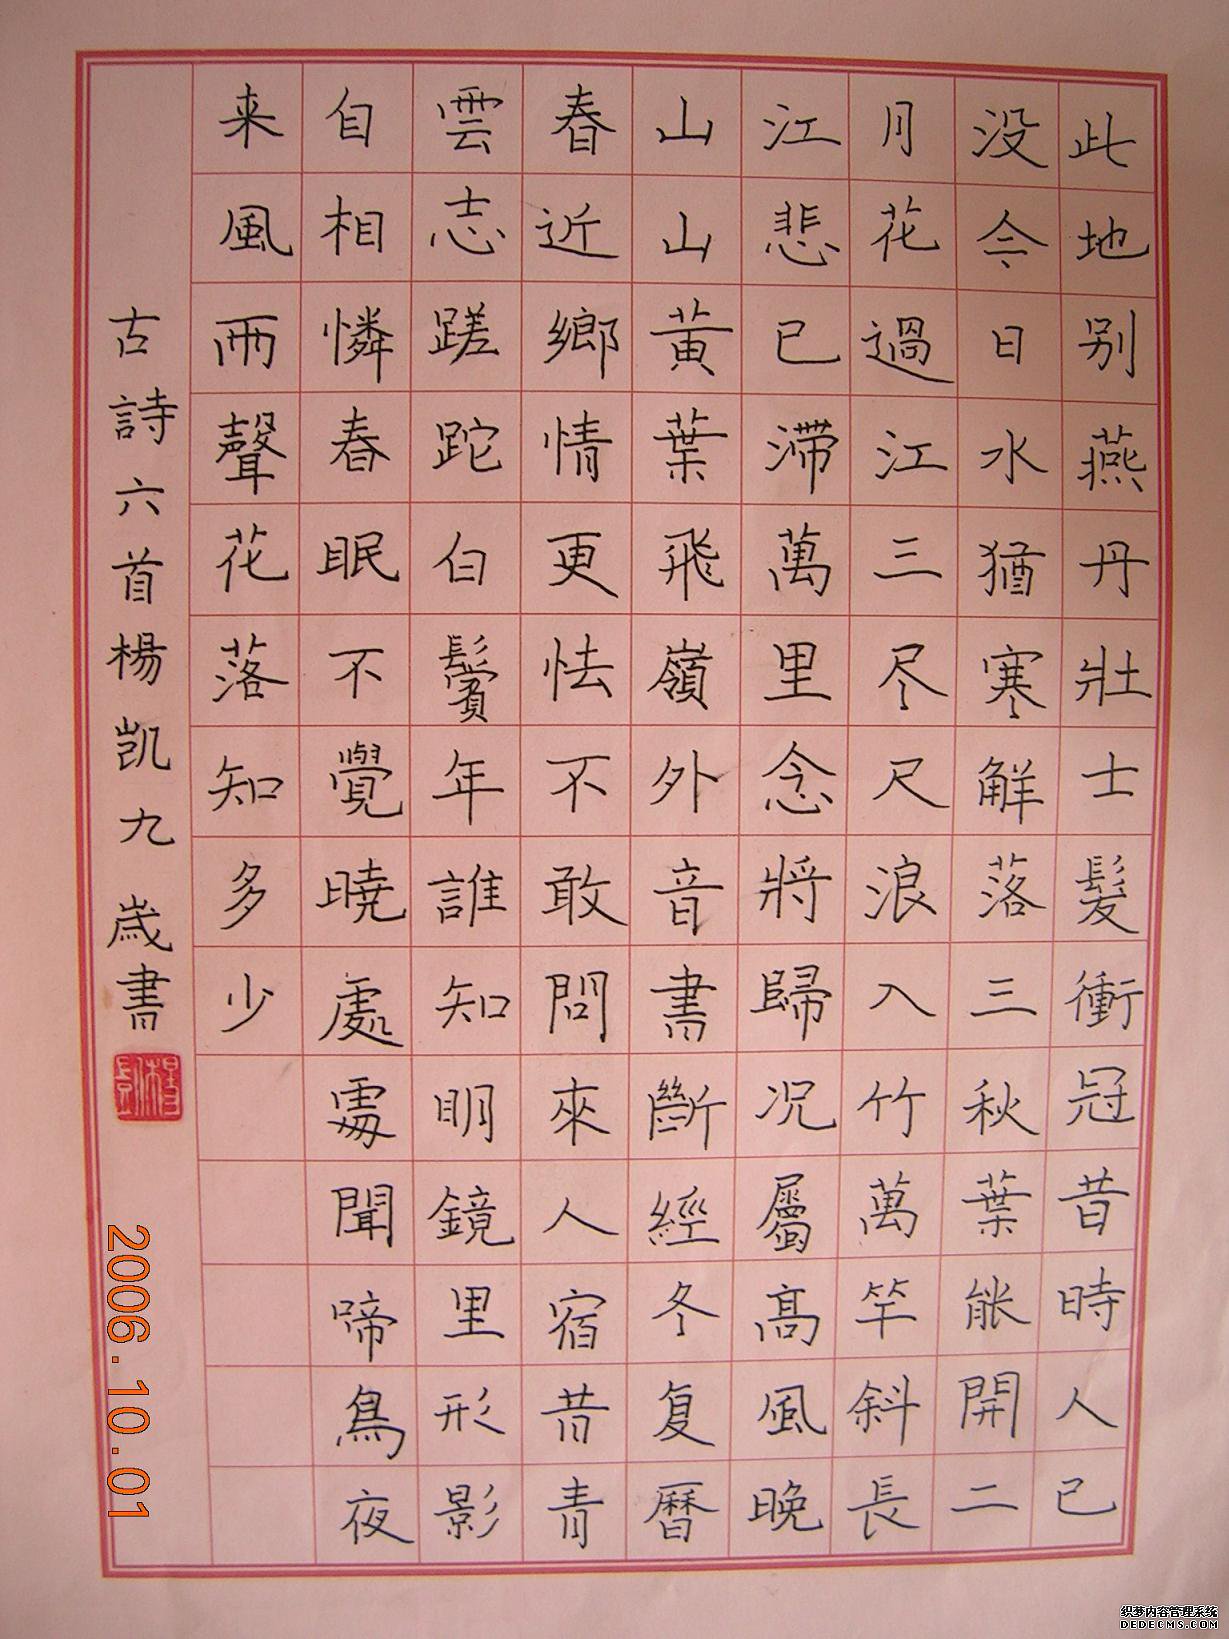 此地别燕丹壯士髮衝冠昔時人已
没今日水猶寒解落三秋葉能開二
月花過江三尽尺浪入竹萬竿斜長
江悲已滯萬里念將歸况屬高風晚
山山黃葉飛嶺外音書斷經冬复曆
春近鄉情更怯不敢問來人宿昔青
雲志蹉跎白鬢年誰知明鏡里形影
自相憐春眠不覺曉處處聞啼鳥夜
来風雨聲花落知多少
古詩六首楊凯九歲書
2006.10.01
织梦内容管理系统
DEDECMS.COM